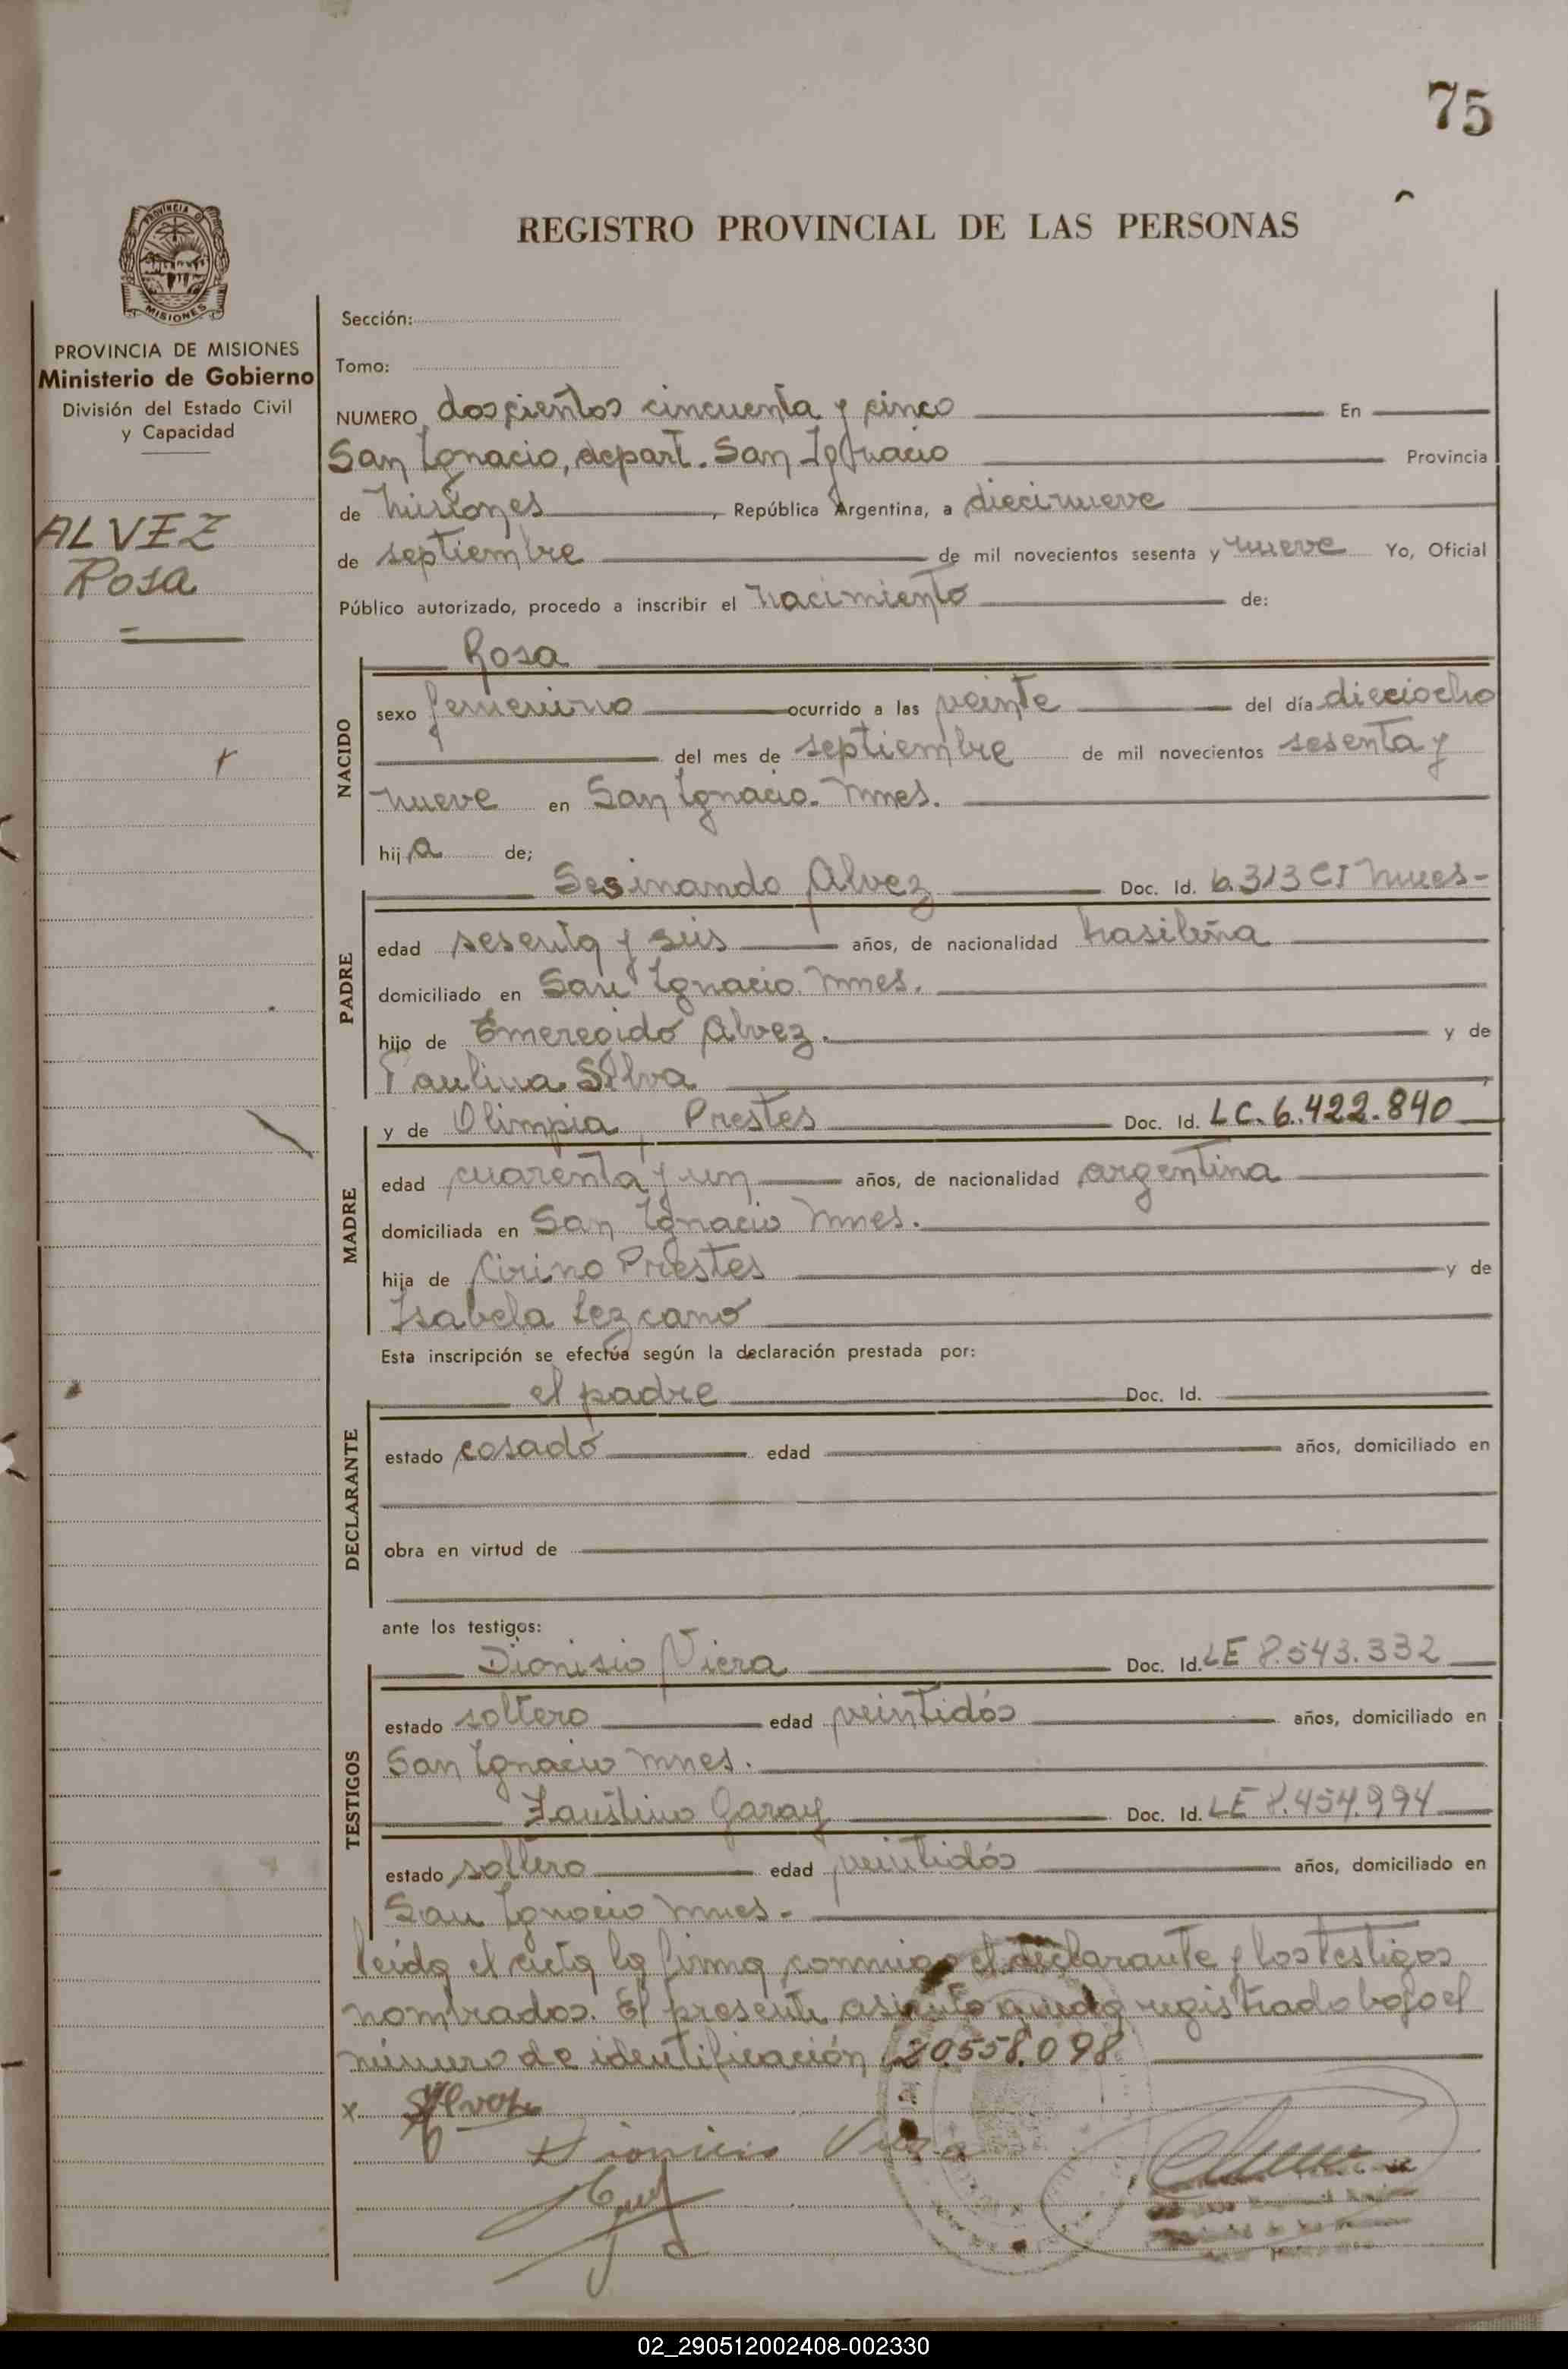 75
REGISTRO PROVINCIAL DE LAS PERSONAS
PROVINCIA DE MISIONES
MISIONES
PROVINCIA DE MISIONES
Ministerio de Gobierno
División del Estado Civil
y Capacidad
ALVEZ
Rosa
Sección:
Tomo:
NUMERO doscientos cincuenta y cinco En
San Ignacio, depart. San Ignacio Provincia
de Misiones, República Argentina, a diecinueve
de septiembre de mil novecientos sesenta y nueve Yo, Oficial
Público autorizado, procedo a inscribir el nacimiento de:
NACIDO
Rosa
sexo femenino ocurrido a las veinte del día dieciocho
del mes de septiembre de mil novecientos sesenta y
nueve en San Ignacio. Mnes.
hija de;
PADRE
Sesinando Alvez Doc. Id. 6.313 CI Mnes-
edad sesenta y seis años, de nacionalidad brasileña
domiciliado en San Ignacio. Mnes.
hijo de Emeregido Alvez. y de
Paulina Silva
MADRE
y de Olimpia Prestes Doc. Id. LC. 6.422.840
edad cuarenta y un años, de nacionalidad argentina
domiciliada en San Ignacio Mnes.
hija de Cirino Prestes y de
Isabela Lezcano
Esta inscripción se efectúa según la declaración prestada por:
DECLARANTE
el padre Doc. Id.
estado casado edad años, domiciliado en
obra en virtud de
ante los testigos:
TESTIGOS
Dionisio Viera Doc. Id. LE 8.543.332
estado soltero edad veintidós años, domiciliado en
San Ignacio Mnes.
Faustino Garay Doc. Id. LE 8.454.994
estado soltero edad veintidós años, domiciliado en
San Ignacio Mnes.-
leída el acta la firma conmigo el declarante y los testigos
nombrados. El presente asiento queda registrado bajo el
número de identificación 20.558.098
x SAlvez
Dionicio Viera
02_290512002408-002330